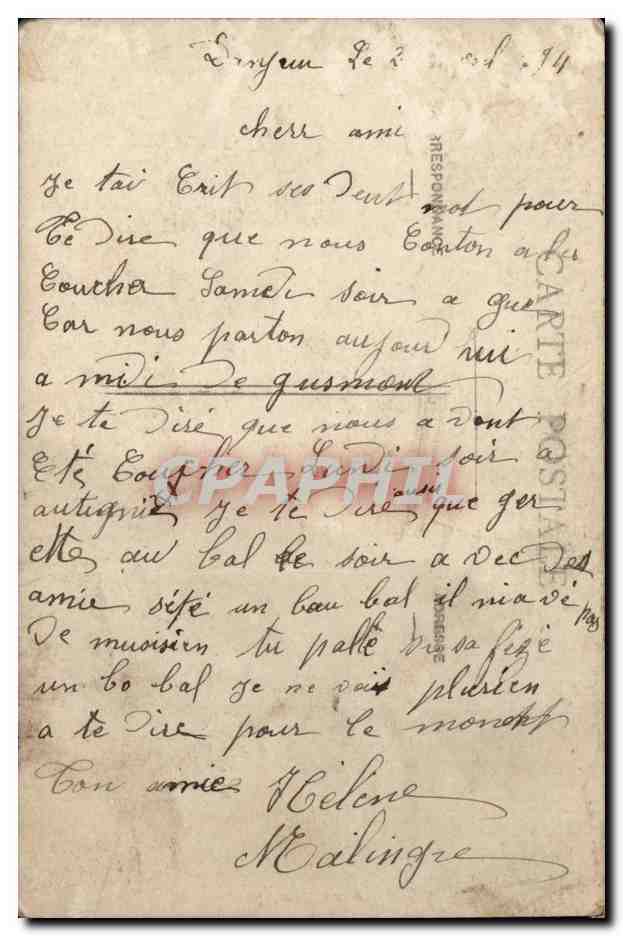 Le 2
cherr ami
Je tai Crit ses deut mot pour
Te dire que nous Conton a lu
Coucher Samdi soir a gue
Car nous parton aujourd uii
a midi de gusmont
Je te diré que nous a vont
Eté Coucher Lundi soir a
autignie Je te diré aussi que ger
etté au bal le soir a vec des
amie sété un bau bal il nia vé pas
de musisien tu palle di sa fezé
un bo bal Je ne vois plurien
a te dire pour le moment
Ton amie Hélène
Malingre
CARTE POSTALE
RRESPONDANCE
ADRESSE
CPAPHIL